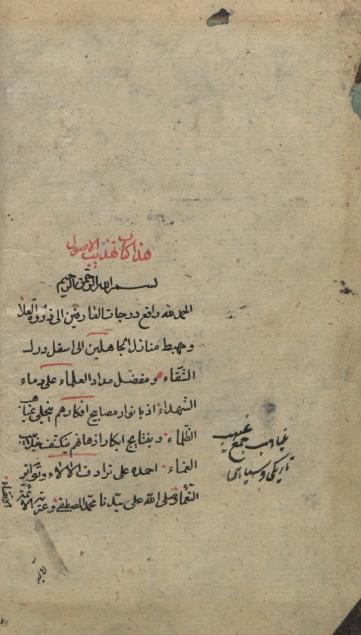 هذا كتاب تهذيب الاصول
بسم الله الرحمن الرحيم
الحمد لله رافع درجات العارفين الى ذروة العلا
ومهبط منازل الجاهلين الى اسفل درك
الشقاء ومفضل مداد العلماء على دماء
الشهداء اذ بانوار مصابيح افكارهم ينجلى غياهب
الظلماء وبنتايج ابكار اذهانهم ينكشف
الغماء احمده على ترادف الالاء وتواتر
النعماء وصلى الله على سيدنا محمد المصطفى وعترته الائمة
غياهب جمع غيهب
تاريكى وسياهى